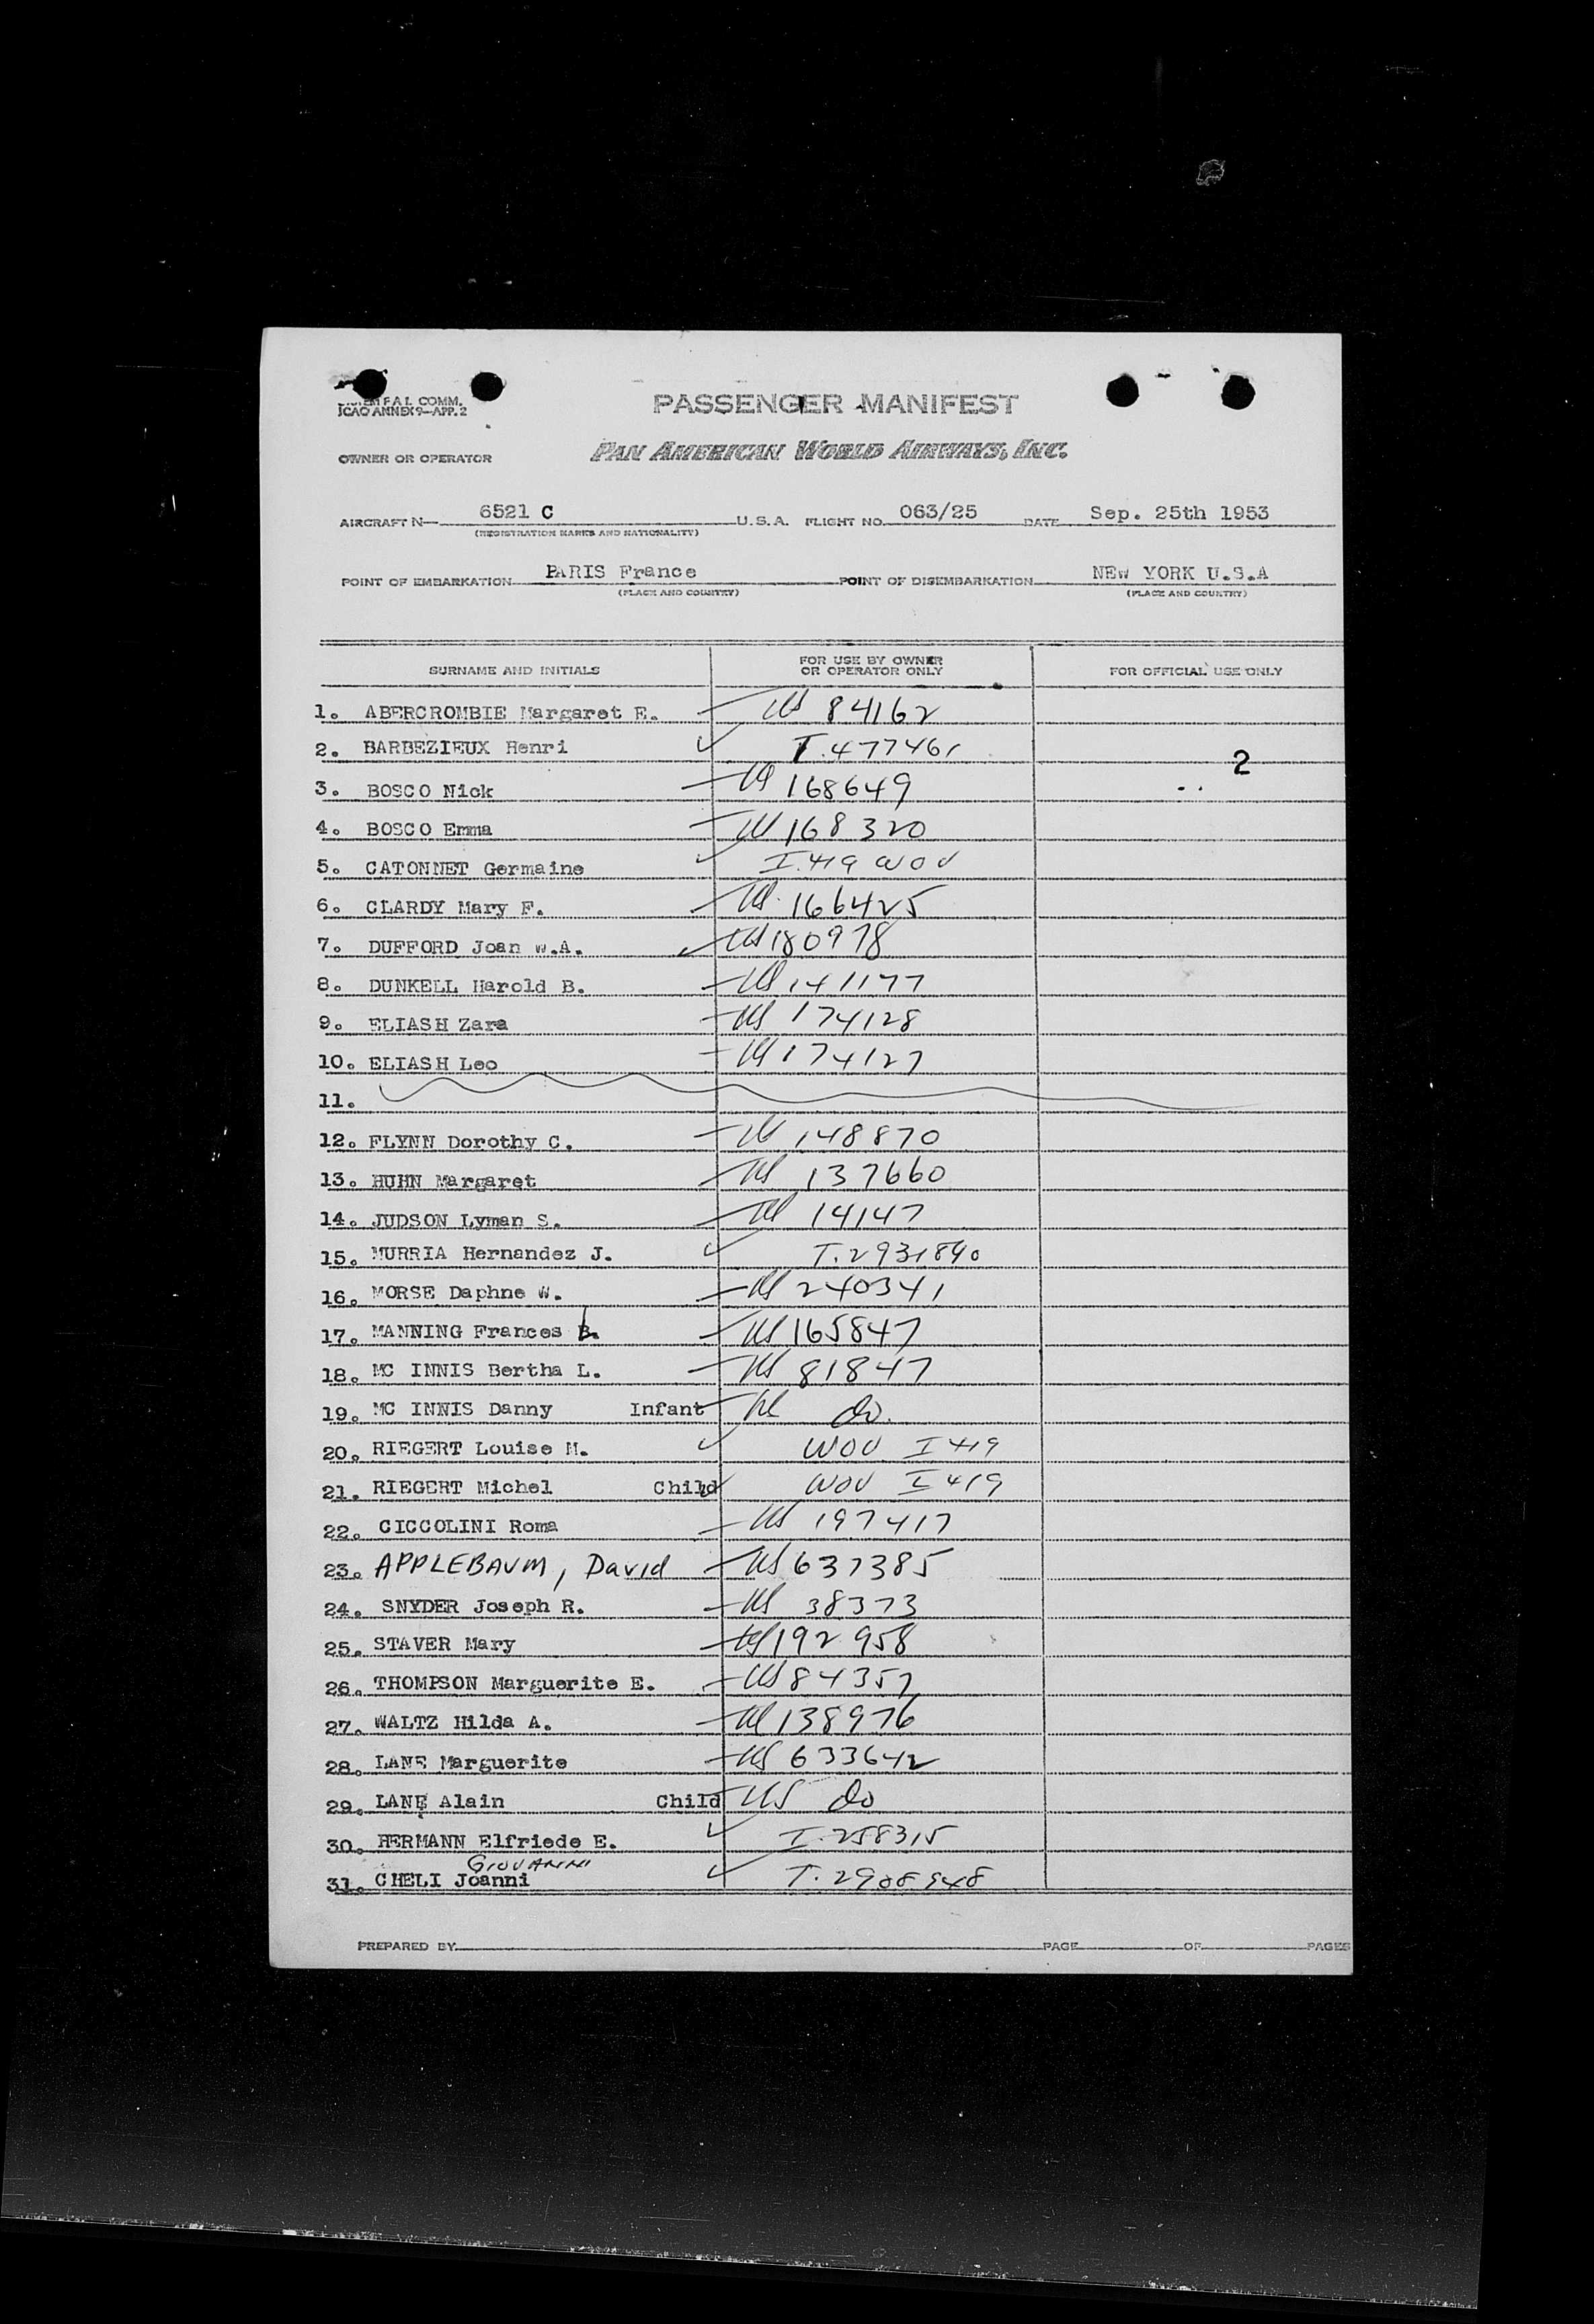 F.A.I. COMM.
ICAO ANNEX 9—APP. 2
PASSENGER MANIFEST
OWNER OR OPERATOR PAN AMERICAN WORLD AIRWAYS, INC.
AIRCRAFT N— 6521 C U.S.A. FLIGHT NO. 063/25 DATE Sep. 25th 1953
(REGISTRATION MARKS AND NATIONALITY)
POINT OF EMBARKATION PARIS France POINT OF DISEMBARKATION NEW YORK U.S.A
(PLACE AND COUNTRY) (PLACE AND COUNTRY)
SURNAME AND INITIALS FOR USE BY OWNER OR OPERATOR ONLY FOR OFFICIAL USE ONLY
1. ABERCROMBIE Margaret E. US 84162
2. BARBEZIEUX Henri T.477461
2
3. BOSCO Nick US 168649
4. BOSCO Emma US 168320
5. CATONNET Germaine I.419 WOV
6. CLARDY Mary F. US 166425
7. DUFFORD Joan W.A. US 180978
8. DUNKELL Harold B. US 141177
9. ELIASH Zara US 174128
10. ELIASH Leo US 174127
11.
12. FLYNN Dorothy C. US 148870
13. HUHN Margaret US 137660
14. JUDSON Lyman S. US 14147
15. MURRIA Hernandez J. T.2931890
16. MORSE Daphne W. US 240341
17. MANNING Frances L. US 165847
18. MC INNIS Bertha L. US 81847
19. MC INNIS Danny Infant US do.
20. RIEGERT Louise M. WOV I 419
21. RIEGERT Michel Child WOV I 419
22. CICCOLINI Roma US 197417
23. APPLEBAUM, David US 637385
24. SNYDER Joseph R. US 38373
25. STAVER Mary US 192958
26. THOMPSON Marguerite E. US 84357
27. WALTZ Hilda A. US 138976
28. LANE Marguerite US 633642
29. LANE Alain Child US do
30. HERMANN Elfriede E. I.258315
GIOVANNI
31. CHELI Joanni T.2908948
PREPARED BY PAGE OF PAGES